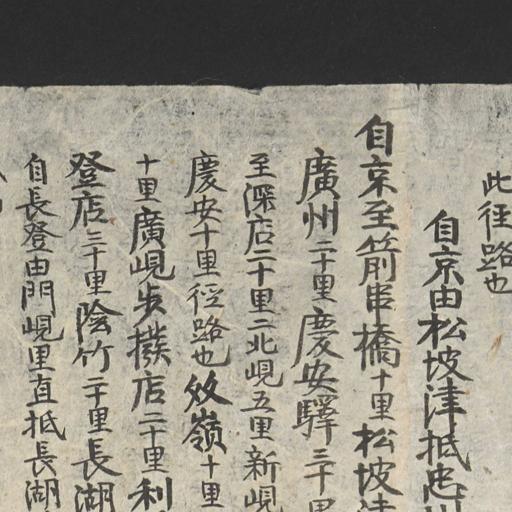 此徑路也
自京由松坡津抵忠州
自京至箭串橋十里松坡津
廣州二十里慶安驛三十里
至深店二十里二北峴五里新峴
慶安十里徑路也 效嶺十里
十里廣峴步撥店二十里利
登店三十里陰竹二十里長湖
自長登由門峴里直抵長湖